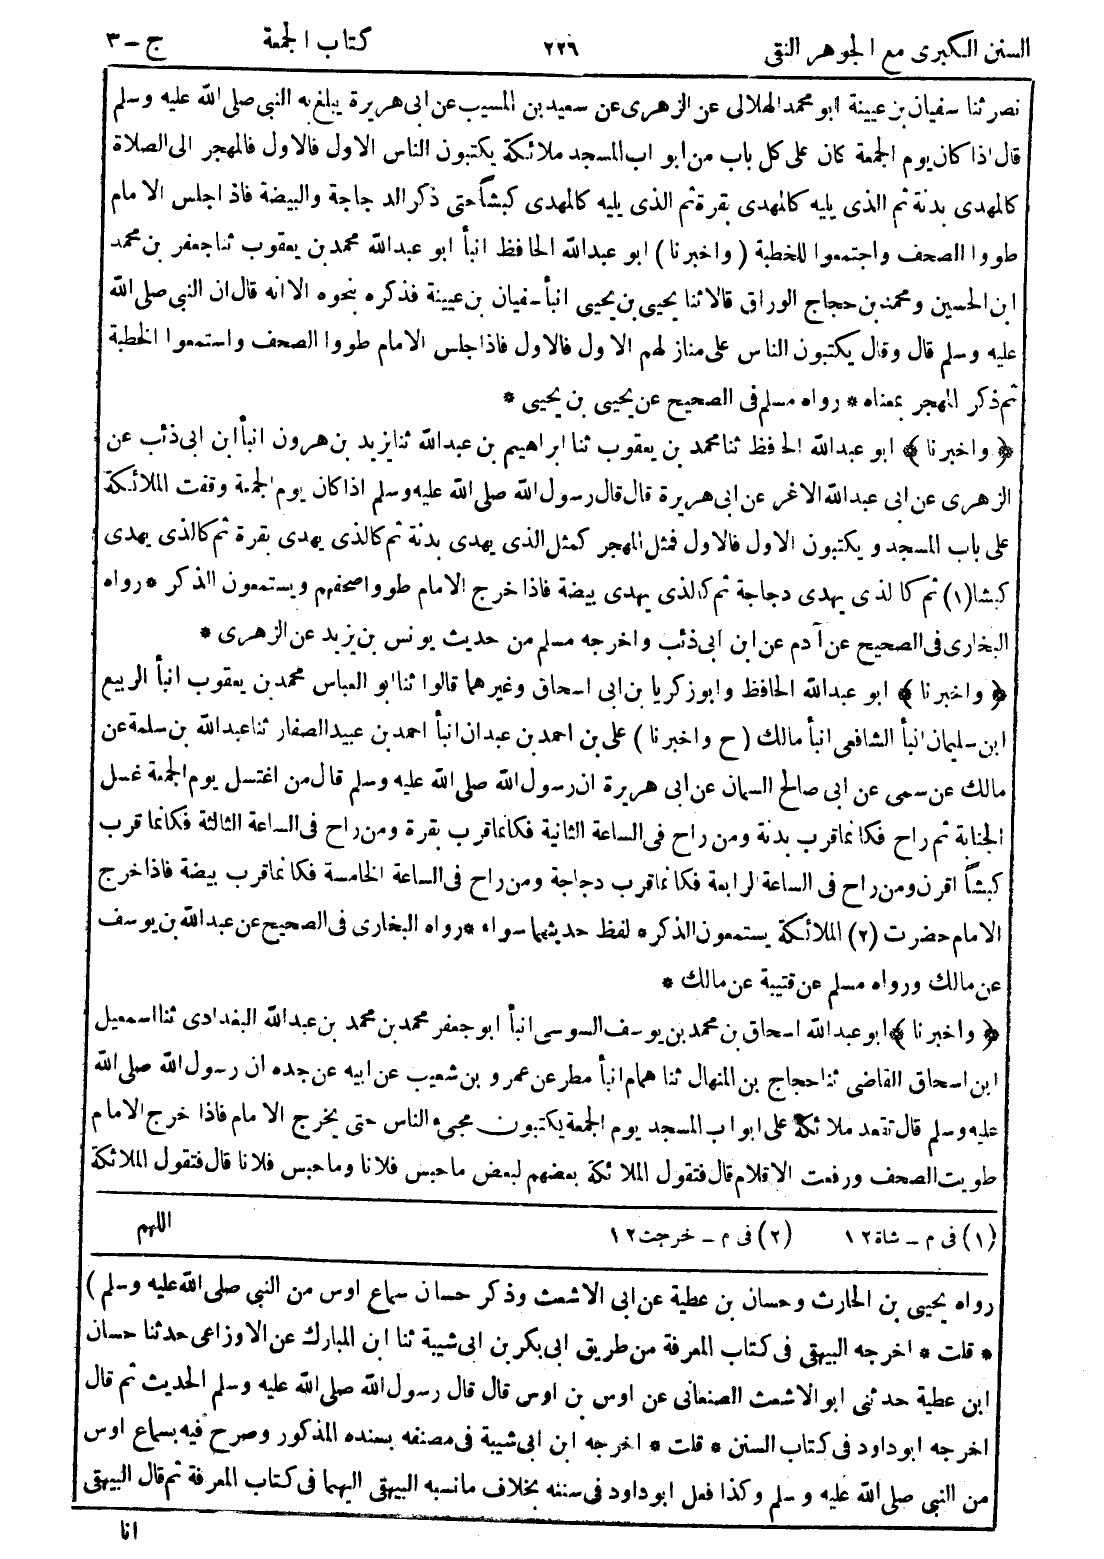 السنن الكبرى مع الجوهر النقى ٢٢٦ كتاب الجمعة ج – ٣
نصر ثنا سفيان بن عيينة ابو محمد الهلالى عن الزهرى عن سعيد بن المسيب عن ابى هريرة يبلغ به النبى صلى الله عليه وسلم
قال اذا كان يوم الجمعة كان على كل باب من ابواب المسجد ملائكة يكتبون الناس الاول فالاول فالمهجر الى الصلاة
كالمهدى بدنة ثم الذى يليه كالمهدى بقرة ثم الذى يليه كالمهدى كبشا حتى ذكر الدجاجة والبيضة فاذا جلس الامام
طووا الصحف واجتمعوا للخطبة (واخبرنا) ابو عبدالله الحافظ انبأ ابو عبدالله محمد بن يعقوب ثنا جعفر بن محمد
ابن الحسين ومحمد بن حجاج الوراق قالا ثنا يحيى بن يحيى انبأ سفيان بن عيينة فذكره بنحوه الا انه قال ان النبى صلى الله
عليه وسلم قال وقال يكتبون الناس على منازلهم الاول فالاول فاذا جلس الامام طووا الصحف واستمعوا الخطبة
ثم ذكر المهجر بمعناه * رواه مسلم فى الصحيح عن يحيى بن يحيى *
﴿ واخبرنا ﴾ ابو عبدالله الحافظ ثنا محمد بن يعقوب ثنا ابراهيم بن عبدالله ثنا يزيد بن هرون انبأ ابن ابى ذئب عن
الزهرى عن ابى عبدالله الاغر عن ابى هريرة قال قال رسول الله صلى الله عليه وسلم اذا كان يوم الجمعة وقفت الملائكة
على باب المسجد ويكتبون الاول فالاول فمثل المهجر كمثل الذى يهدى بدنة ثم كالذى يهدى بقرة ثم كالذى يهدى
كبشا (١) ثم كالذى يهدى دجاجة ثم كالذى يهدى بيضة فاذا خرج الامام طووا صحفهم ويستمعون الذكر * رواه
البخارى فى الصحيح عن آدم عن ابن ابى ذئب واخرجه مسلم من حديث يونس بن يزيد عن الزهرى *
﴿ واخبرنا ﴾ ابو عبدالله الحافظ وابوزكريا بن ابى اسحاق وغيرهما قالوا ثنا ابو العباس محمد بن يعقوب انبأ الربيع
ابن سليمان انبأ الشافعى انبأ مالك (ح واخبرنا) على بن احمد بن عبدان انبأ احمد بن عبيد الصفار ثنا عبدالله بن سلمة عن
مالك عن سمى عن ابى صالح السمان عن ابى هريرة ان رسول الله صلى الله عليه وسلم قال من اغتسل يوم الجمعة غسل
الجنابة ثم راح فكانما قرب بدنة ومن راح فى الساعة الثانية فكانما قرب بقرة ومن راح فى الساعة الثالثة فكانما قرب
كبشاً اقرن ومن راح فى الساعة الرابعة فكانما قرب دجاجة ومن راح فى الساعة الخامسة فكانما قرب بيضة فاذا خرج
الامام حضرت (٢) الملائكة يستمعون الذكر * لفظ حديثهما سواء * رواه البخارى فى الصحيح عن عبدالله بن يوسف
عن مالك ورواه مسلم عن قتيبة عن مالك *
﴿ واخبرنا ﴾ ابو عبدالله اسحاق بن محمد بن يوسف السوسى انبأ ابو جعفر محمد بن محمد بن عبدالله البغدادى ثنا اسمعيل
ابن اسحاق القاضى ثنا حجاج بن المنهال ثنا همام انبأ مطر عن عمرو بن شعيب عن ابيه عن جده ان رسول الله صلى الله
عليه وسلم قال تقعد ملائكة على ابواب المسجد يوم الجمعة يكتبون مجىء الناس حتى يخرج الامام فاذا خرج الامام
طويت الصحف ورفعت الاقلام قال فتقول الملائكة بعضهم لبعض ما حبس فلانا وما حبس فلانا قال فتقول الملائكة
(١) فى م – شاة ١٢ (٢) فى م – خرجت ١٢ اللهم
رواه يحيى بن الحارث وحسان بن عطية عن ابى الاشعث وذكر حسان سماع اوس من النبى صلى الله عليه وسلم)
* قلت * اخرجه البيهقى فى كتاب المعرفة من طريق ابى بكر بن ابى شيبة ثنا ابن المبارك عن الاوزاعى حدثنا حسان
ابن عطية حدثنى ابو الاشعث الصنعانى عن اوس بن اوس قال قال رسول الله صلى الله عليه وسلم الحديث ثم قال
اخرجه ابوداود فى كتاب السنن * قلت * اخرجه ابن ابى شيبة فى مصنفه بسنده المذكور وصرح فيه بسماع اوس
من النبى صلى الله عليه وسلم وكذا فعل ابوداود فى سننه بخلاف ما نسبه البيهقى اليهما فى كتاب المعرفة ثم قال البيهقى
انا